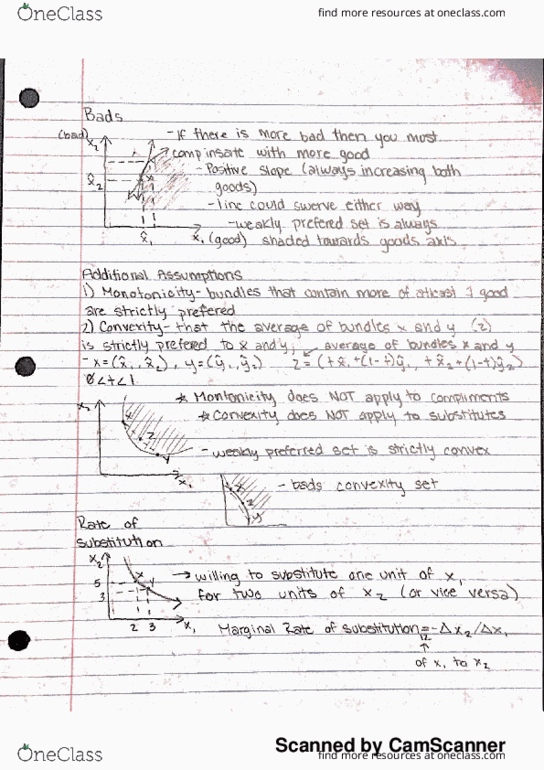 OneClass
find more resources at oneclass.com
Bads
(bad)
x₂
x̂₂
x̂₁
x₁ (good)
- If there is more bad then you must
compinsate with more good
- Positive slope (always increasing both
goods)
- line could swerve either way
- weakly prefered set is always
shaded towards goods axis
Additional Assumptions
1) Monotonicity - bundles that contain more of atleast 1 good
are strictly prefered
2) Convexity - that the average of bundles x and y (z)
is strictly prefered to x and y,
average of bundles x and y
- x=(x̂₁,x̂₂), y=(ŷ₁,ŷ₂)
z=(tx̂₁+(1-t)ŷ₁, tx̂₂+(1-t)ŷ₂)
0<t<1
* Montonicity does NOT apply to compliments
* Convexity does NOT apply to substitutes
x₂
x
z
y
x₁
- weakly preferred set is strictly convex
x
z
y
- bads convexity set
Rate of
substitution
x₂
5
3
x
y
2 3
x₁
→ willing to substitute one unit of x₁
for two units of x₂ (or vice versa)
Marginal Rate of substitution = -Δx₂/Δx₁
12
↑
of x₁ to x₂
Scanned by CamScanner
OneClass
find more resources at oneclass.com